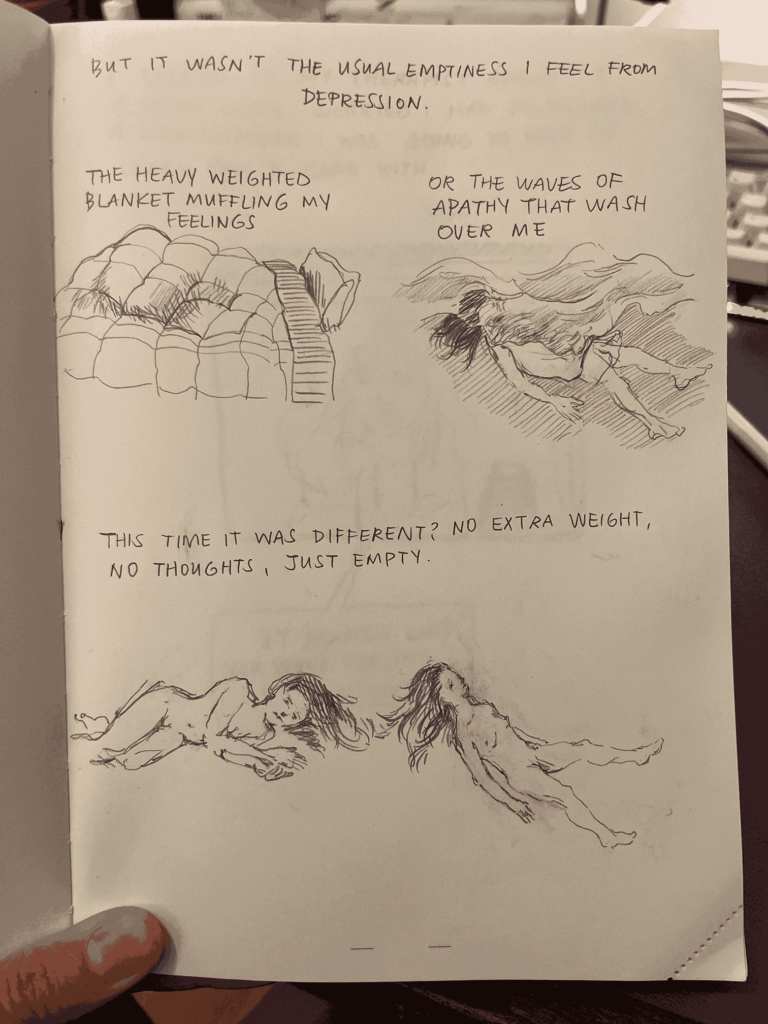 BUT IT WASN'T THE USUAL EMPTINESS I FEEL FROM
DEPRESSION.
THE HEAVY WEIGHTED
BLANKET MUFFLING MY
FEELINGS
OR THE WAVES OF
APATHY THAT WASH
OVER ME
THIS TIME IT WAS DIFFERENT? NO EXTRA WEIGHT,
NO THOUGHTS, JUST EMPTY.